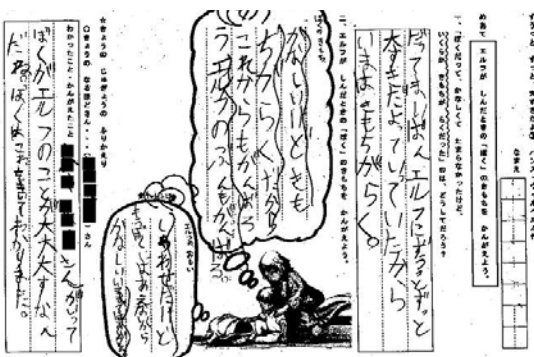 ずうっと、ずっと、大すきだよ
なまえ
めあて エルフが しんだときの 「ぼく」の きもちを かんがえよう。
一、「ぼくだって、かなしくて たまらなかったけど、
いくらか きもちが らくだった」のは、どうしてだろう?
だってまいばんエルフにずうっとずっと
大すきだよっていっていたから
いまはきもちがらく。
二、エルフが しんだときの 「ぼく」の きもちを かんがえよう。
ぼくの きもち
かなしいけどきも
ちがらくだから
これからもがんばろ
う エルフの ぶんもがんばる。
エルフの おもい
しあわせだけど
かなしい
☆きょうの じゅぎょうの ふりかえり
○きょうの なるほどさん・・・
さん
わかったこと・かんがえたこと
さんがいって
ぼくがエルフのことが大大大すきなん
だね。